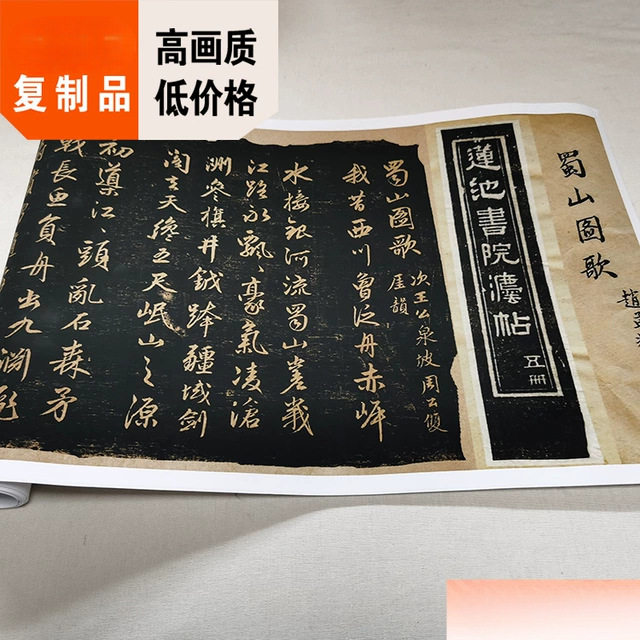 复制品
高画质
低价格
蜀山圖歌
趙
蓮池書院灋帖
五册
蜀山圖歌 次王公泉坡周公
厓韻
我昔西川曾泛舟赤岸
水接銀河流蜀山嵳峩
江路永飄〻豪氣凌滄
洲參旗井鉞跨疆域劍
閣去天纔咫尺岷山之源
初江〻頭亂石森矛
戟長魚負舟出九淵